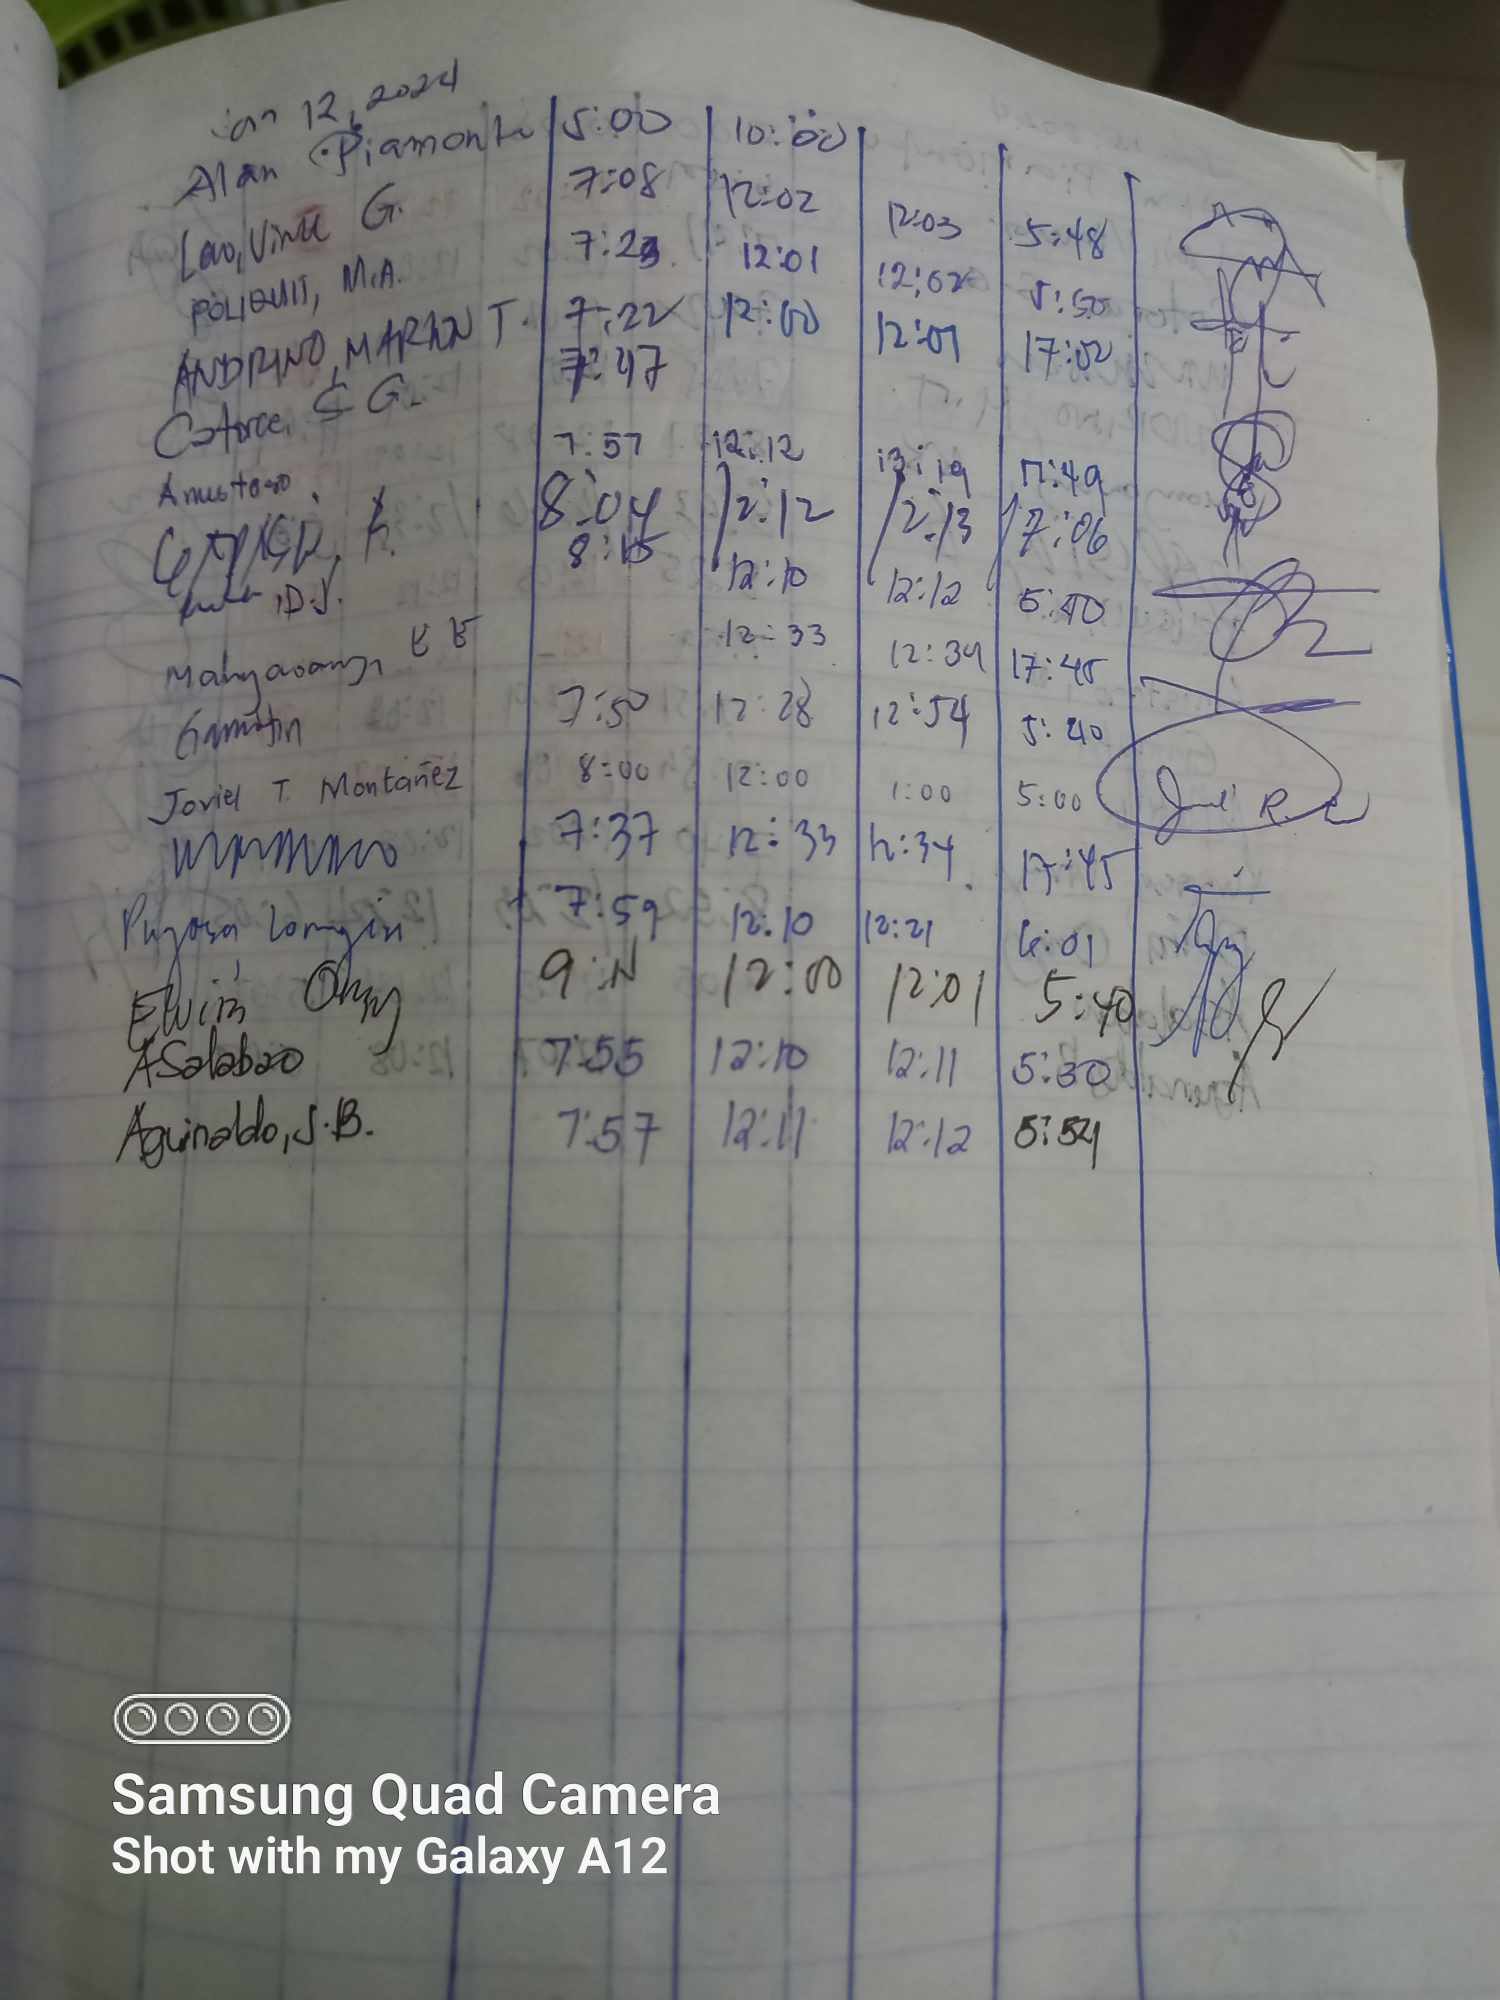 Jan 12, 2024
Alan C. Piamonte 5:00 10:00
Lao, Vince G. 7:08 12:02 12:03 5:48
POLIQUIT, M.A. 7:23 12:01 12:02 5:50
ANDRINO, MARIAN T. 7:22 12:00 12:01 17:02
7:47
7:57 12:12 17:49
8:04 12:12 12:13 17:06
D.J. 8:15 12:10 12:12 5:40
12:33 12:34 17:45
7:50 12:28 12:54 5:40
Joviel T. Montañez 8:00 12:00 1:00 5:00
7:37 12:33 12:34 17:45
7:59 12:10 12:21 6:01
Elvin 12:00 12:01 5:40
ASalabao 7:55 12:10 12:11 5:30
Aguinaldo, J.B. 7:57 12:11 12:12 5:54
Samsung Quad Camera
Shot with my Galaxy A12